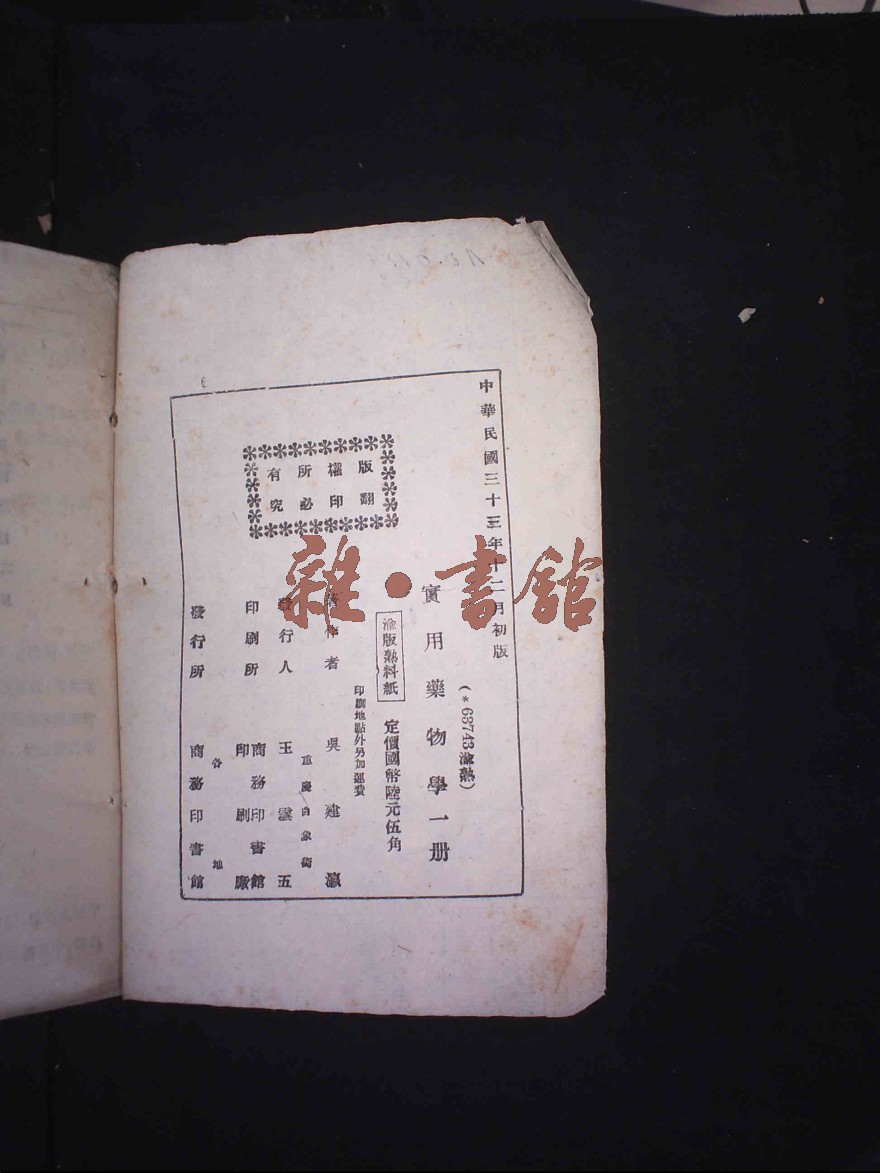 中華民國三十三年十二月初版
(*63743渝熟)
實用藥物學一册
渝版熟料紙
定價國幣陸元伍角
印刷地點外另加運費
版權所有
翻印必究
著作者 吳建瀛
重慶白象街
發行人 王雲五
印刷所 商務印書館
印刷廠
各地
發行所 商務印書館
雜·書館